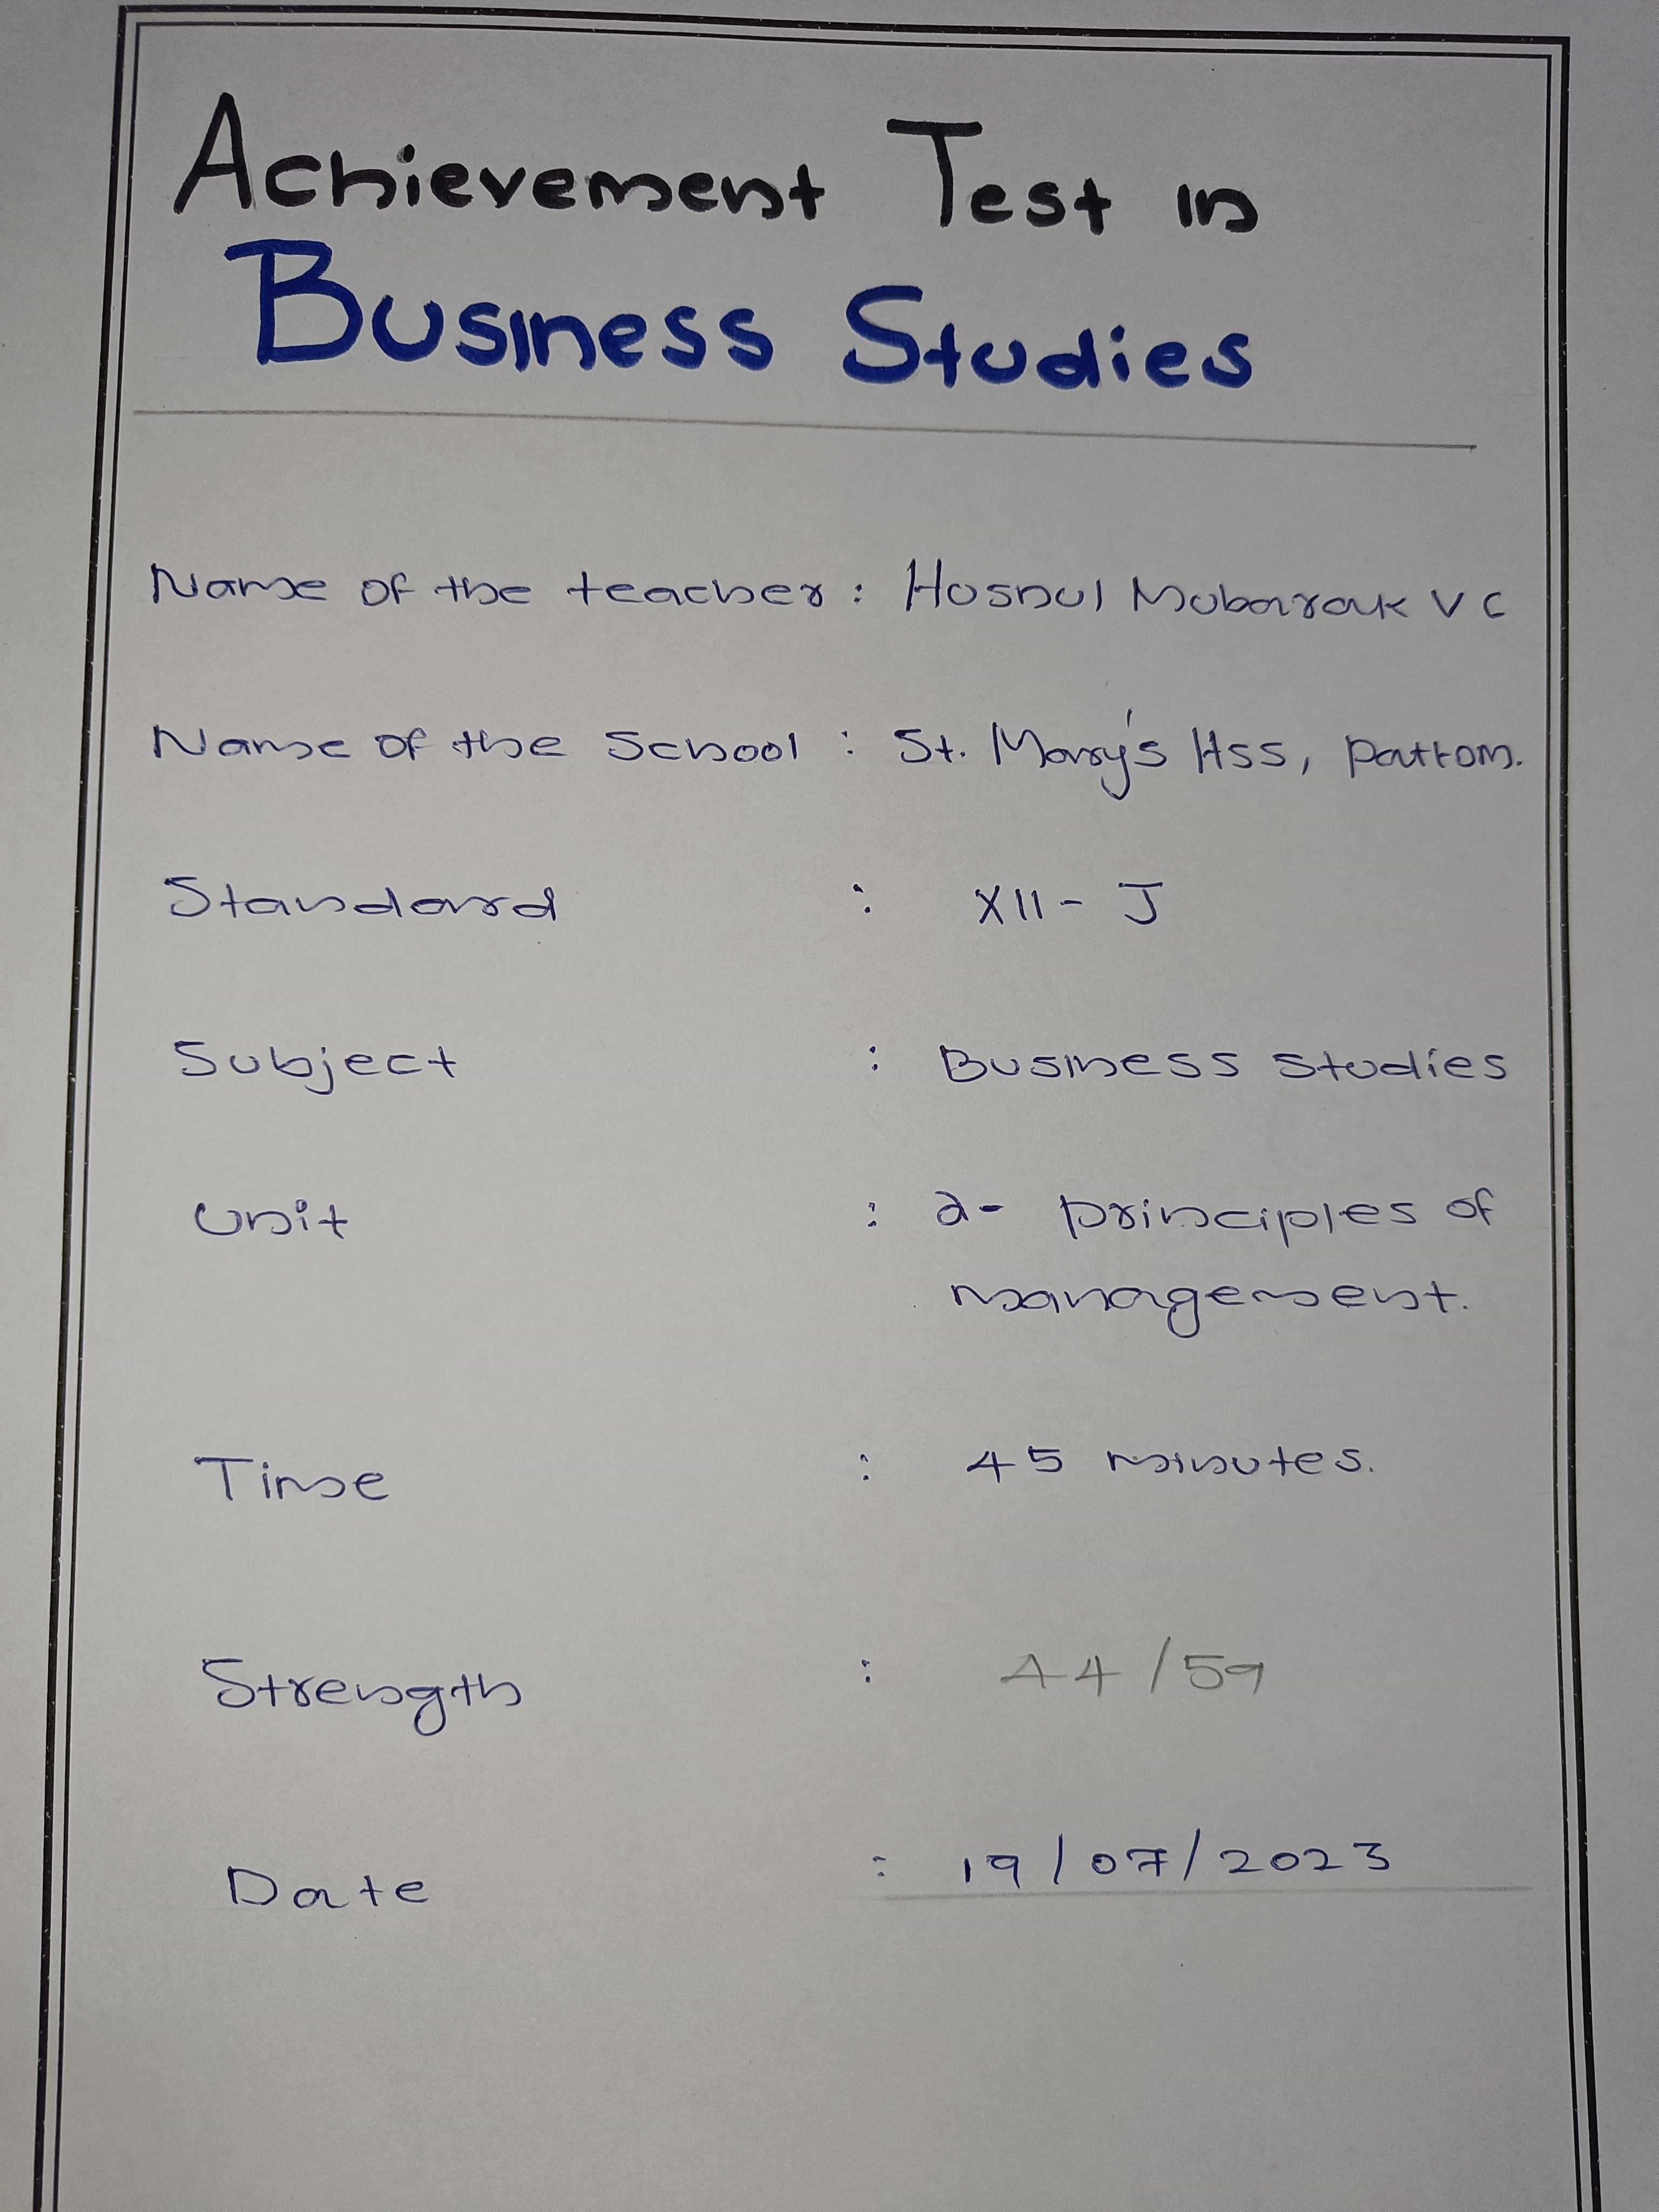 Achievement Test in
Business Studies
Name of the teacher : Hosnul Mubarak V C
Name of the School : St. Mary's Hss, Pattom.
Standard : XII - J
Subject : Business Studies
Unit : 2- Principles of
management.
Time : 45 minutes.
Strength : 44/59
Date : 19/07/2023